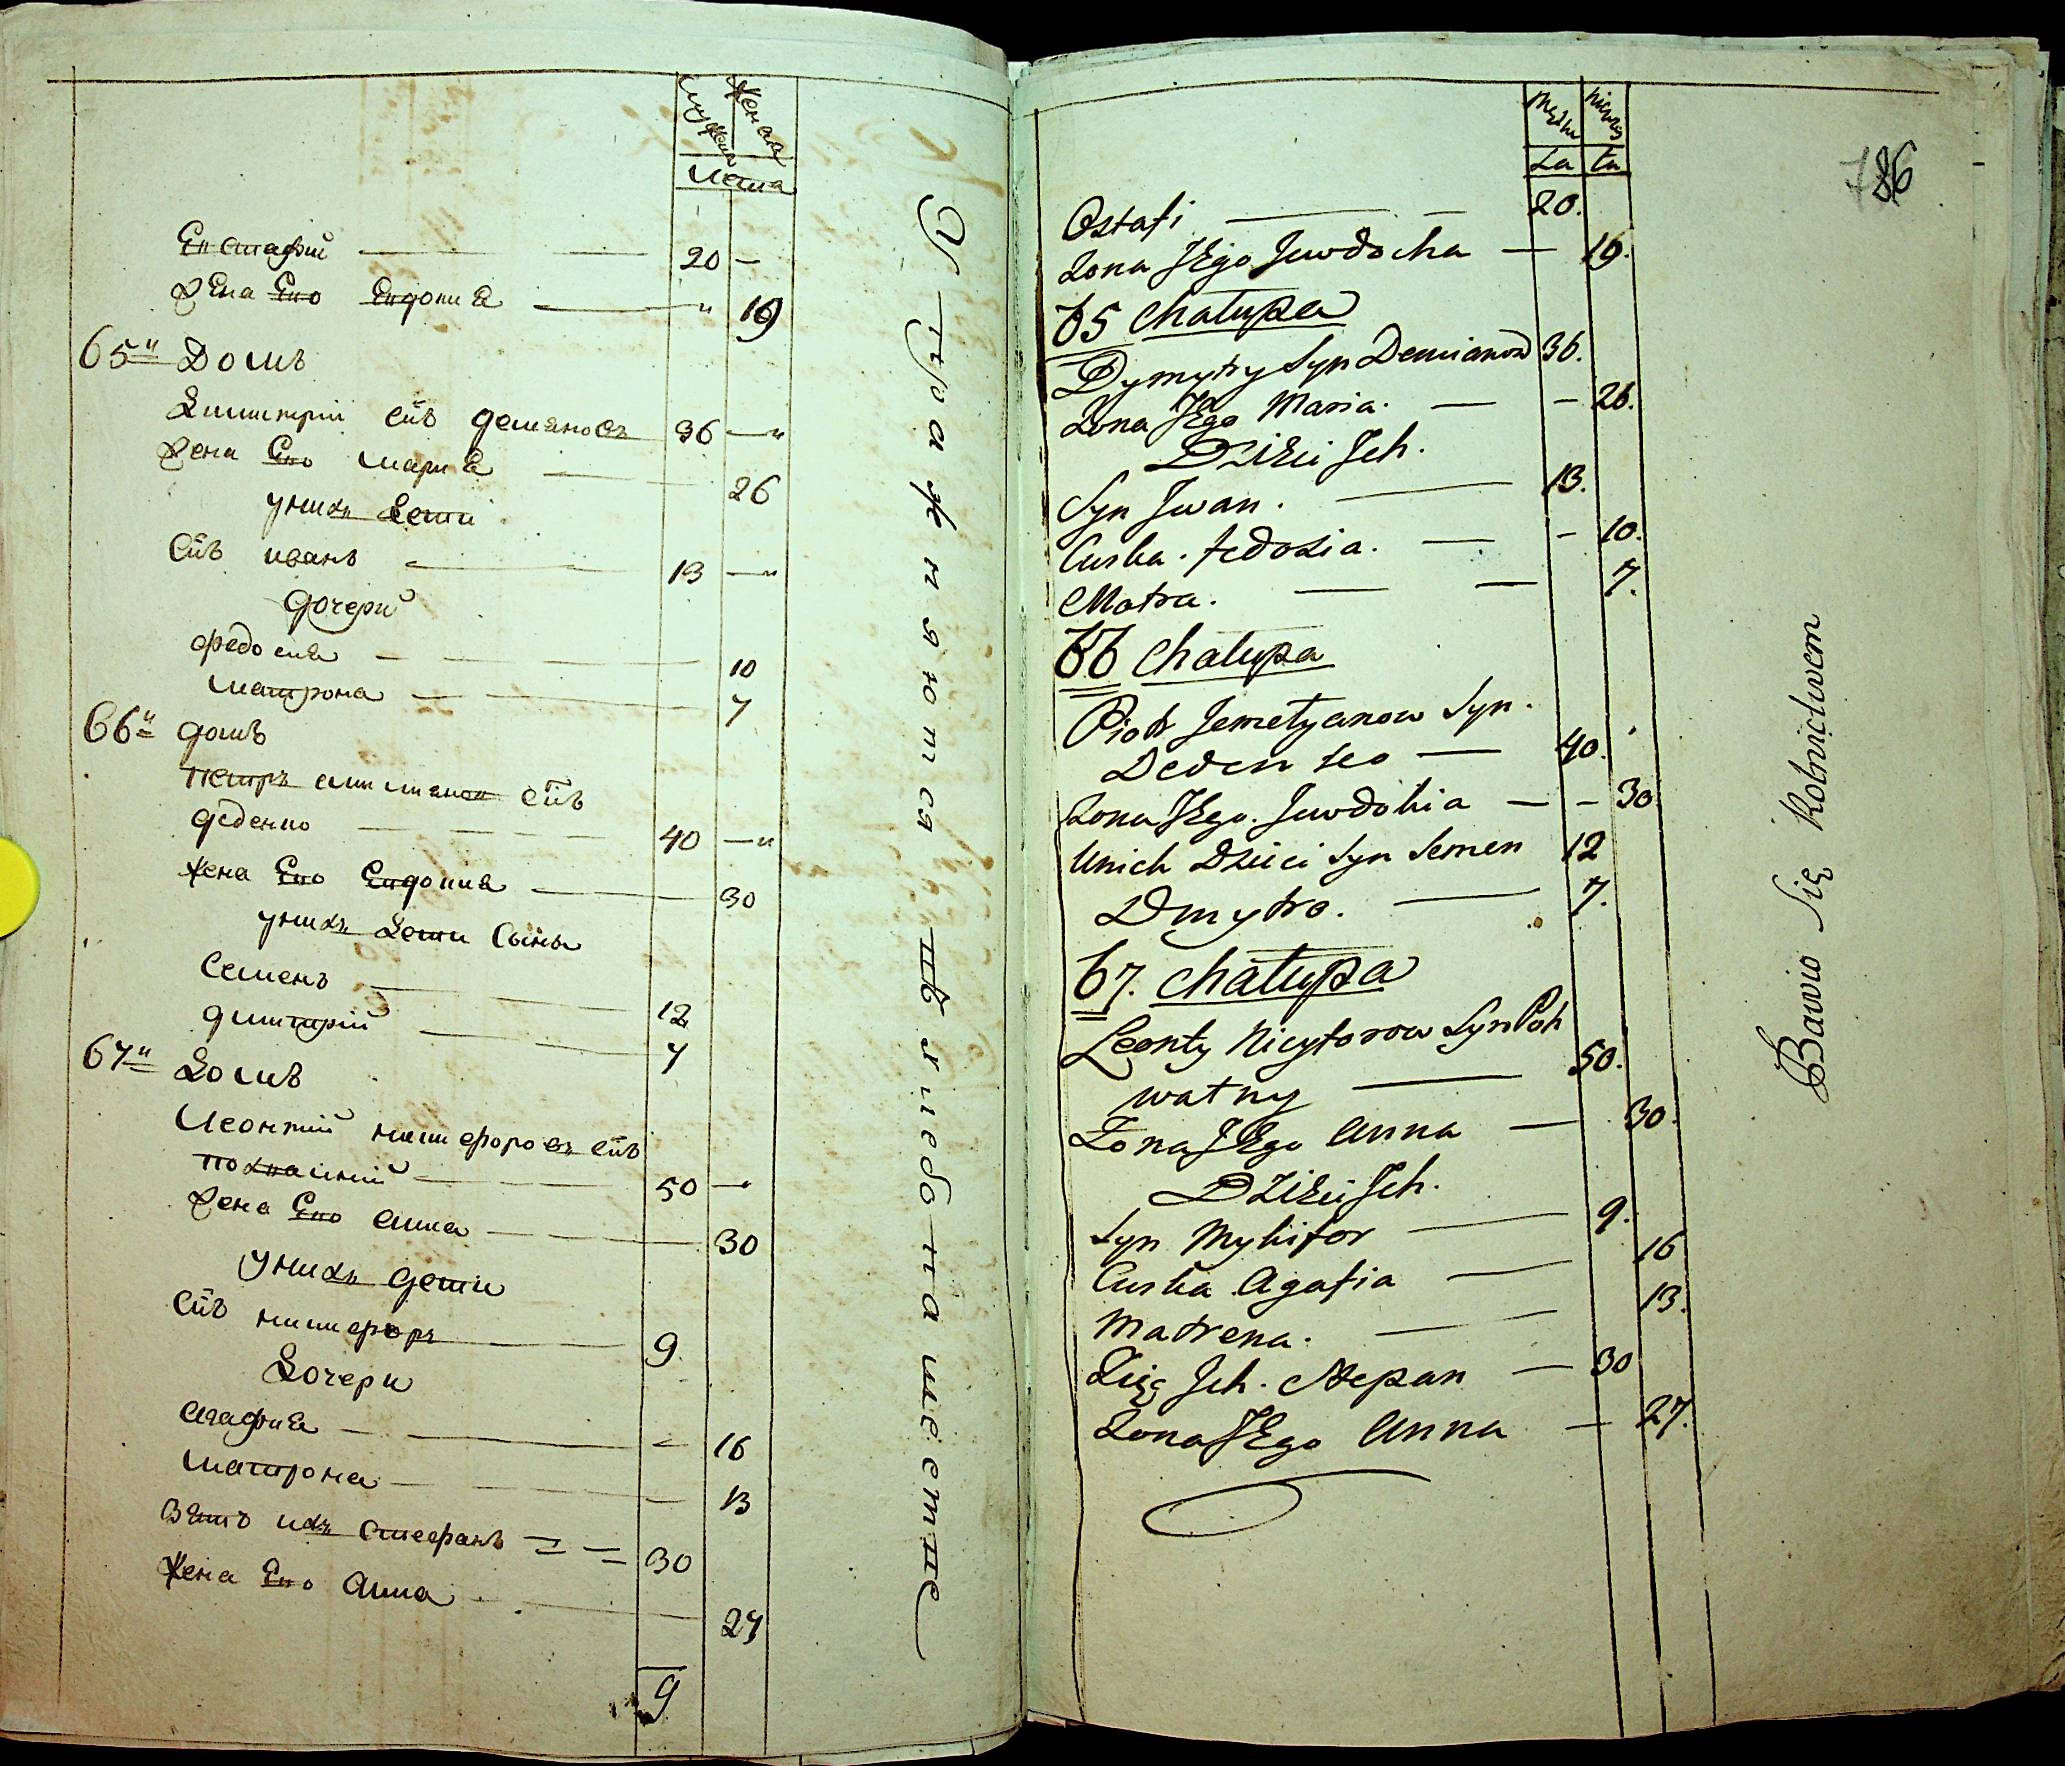 Мужеска Женска
Лета
Евстафий — — 20 —
Жена Его Евдокия — " 19
65й Домъ
Димитрий снъ демяновъ 36 — "
Жена Его Мария — 26
уних детй
снъ иванъ — — 13 — "
дочери
федосия — — 10
матрона — — 7
66й домъ
Петръ снъ
деденко — — — 40 — "
жена Его Евдокия — 30
уних дети сыны
Семенъ — — 12
димитрий — 7
67й Домъ
Леонтий никифоровъ снъ
похватний — — 50 —
жена Его анна — — — 30
уних дети
снъ никифоръ — 9
Дочери
агафия — — — 16
матрона — — 13
зять ихъ стефанъ = = 30
жена Его анна — — 27
9
Упражняются в хлебопашестве
Męzka Niewia
La ta
786
Ostafi — — 20.
Zona JEgo Juwdocha — 19.
65 Chałupa
Dymytry Syn Demianow 36.
Zona JEgo Maria. — — 26.
DziEci Jch.
Syn Jwan. — 13.
Curka. fedosia. — — 10.
Motra. — — 7.
66 Chałupa
Piotr Jemelyanow Syn.
Deden ko — 40.
Zona JEgo. Juwdokia — — 30
Unich Dzieci Syn Semen 12
Dmytro. — 7.
67. Chałupa
Leonty Nicyforow Syn Poh
watny — 50.
Zona JEgo Anna — 30.
DziEci Jch.
Syn Mykifor — 9.
Curka Agafia — 16
Matrena. — 13.
Zięc Jch. Stepan — 30
Zona JEgo Anna — 27.
Bawio Się Rolnictwem